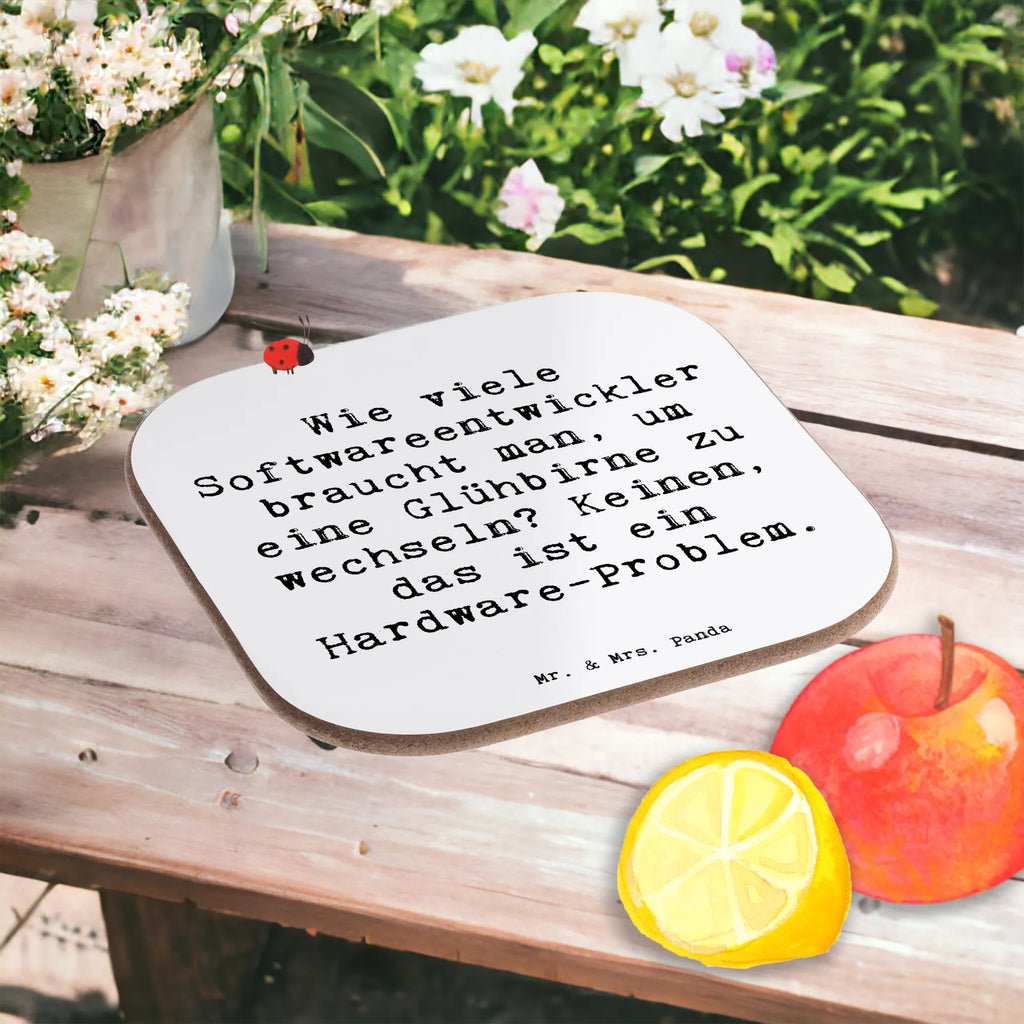 Wie viele
Softwareentwickler
braucht man, um
eine Glühbirne zu
wechseln? Keinen,
das ist ein
Hardware-Problem.
Mr. & Mrs. Panda